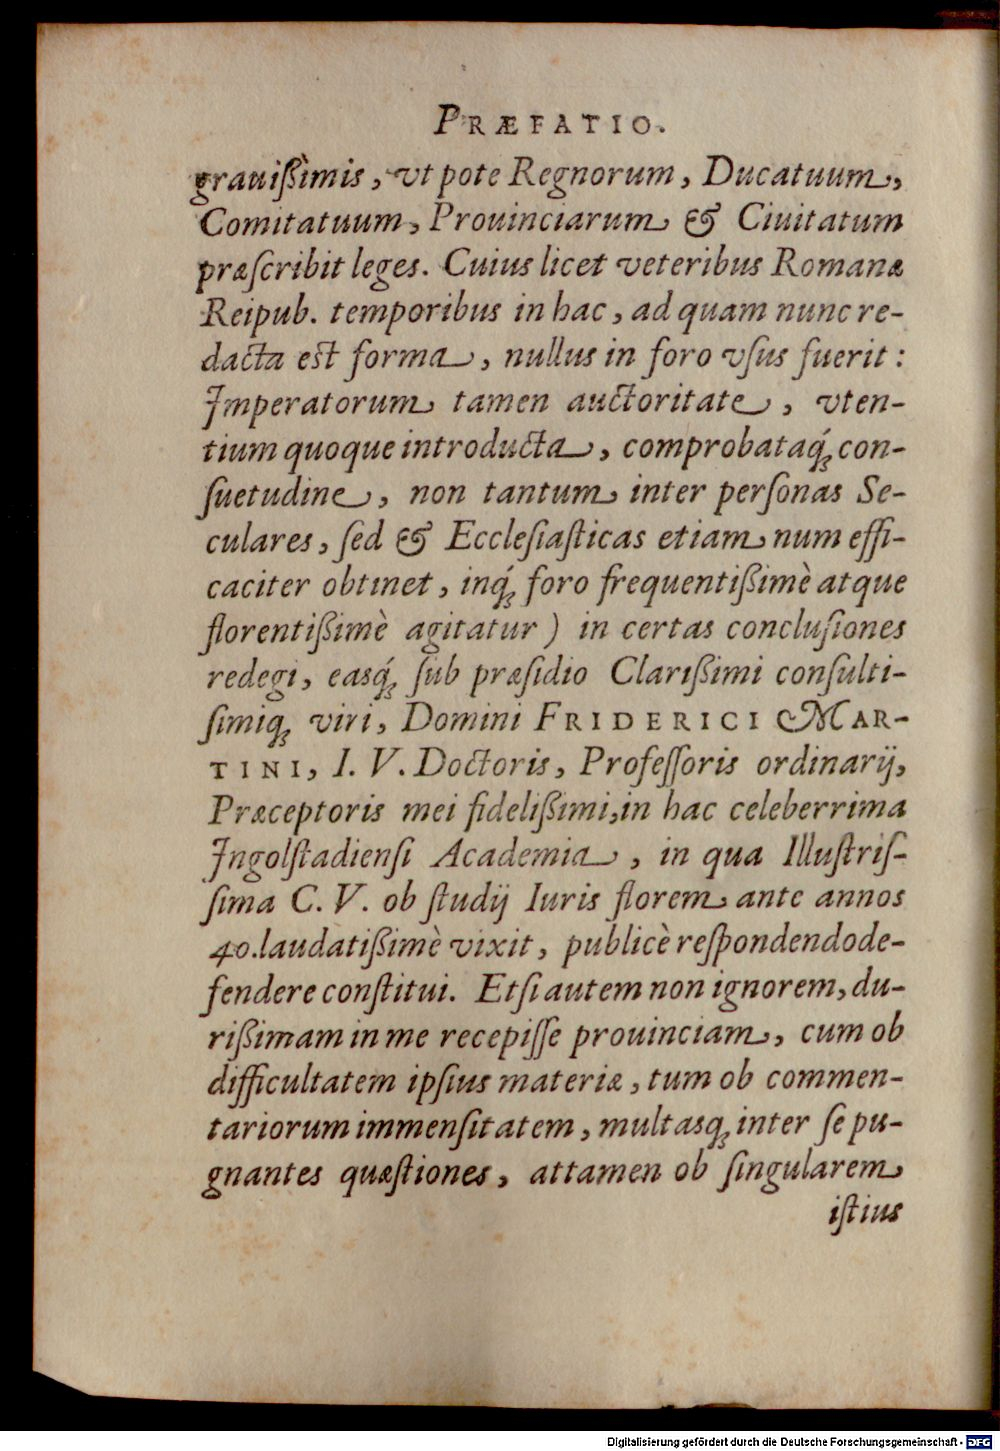 PRÆFATIO.
grauißimis, vt pote Regnorum, Ducatuum,
Comitatuum, Prouinciarum & Ciuitatum
præſcribit leges. Cuius licet veteribus Romanæ
Reipub. temporibus in hac, ad quam nunc re-
dacta est forma, nullus in foro vſus fuerit:
Imperatorum tamen auctoritate, vten-
tium quoque introducta, comprobataq́; con-
ſuetudine, non tantum inter perſonas Se-
culares, ſed & Eccleſiaſticas etiam num effi-
caciter obtinet, inq́; foro frequentißimè atque
florentißimè agitatur) in certas concluſiones
redegi, easq́; ſub præſidio Clarißimi conſulti-
ſimiq; viri, Domini FRIDERICI MAR-
TINI, I. V. Doctoris, Profeſſoris ordinarij,
Præceptoris mei fidelißimi, in hac celeberrima
Ingolſtadienſi Academia, in qua Illuſtriſ-
ſima C. V. ob ſtudij Iuris florem ante annos
40. laudatißimè vixit, publicè reſpondendo de-
fendere conſtitui. Etſi autem non ignorem, du-
rißimam in me recepiſſe prouinciam, cum ob
difficultatem ipſius materiæ, tum ob commen-
tariorum immenſitatem, multasq; inter ſe pu-
gnantes quæſtiones, attamen ob ſingularem
iſtius
Digitalisierung gefördert durch die Deutsche Forschungsgemeinschaft - DFG